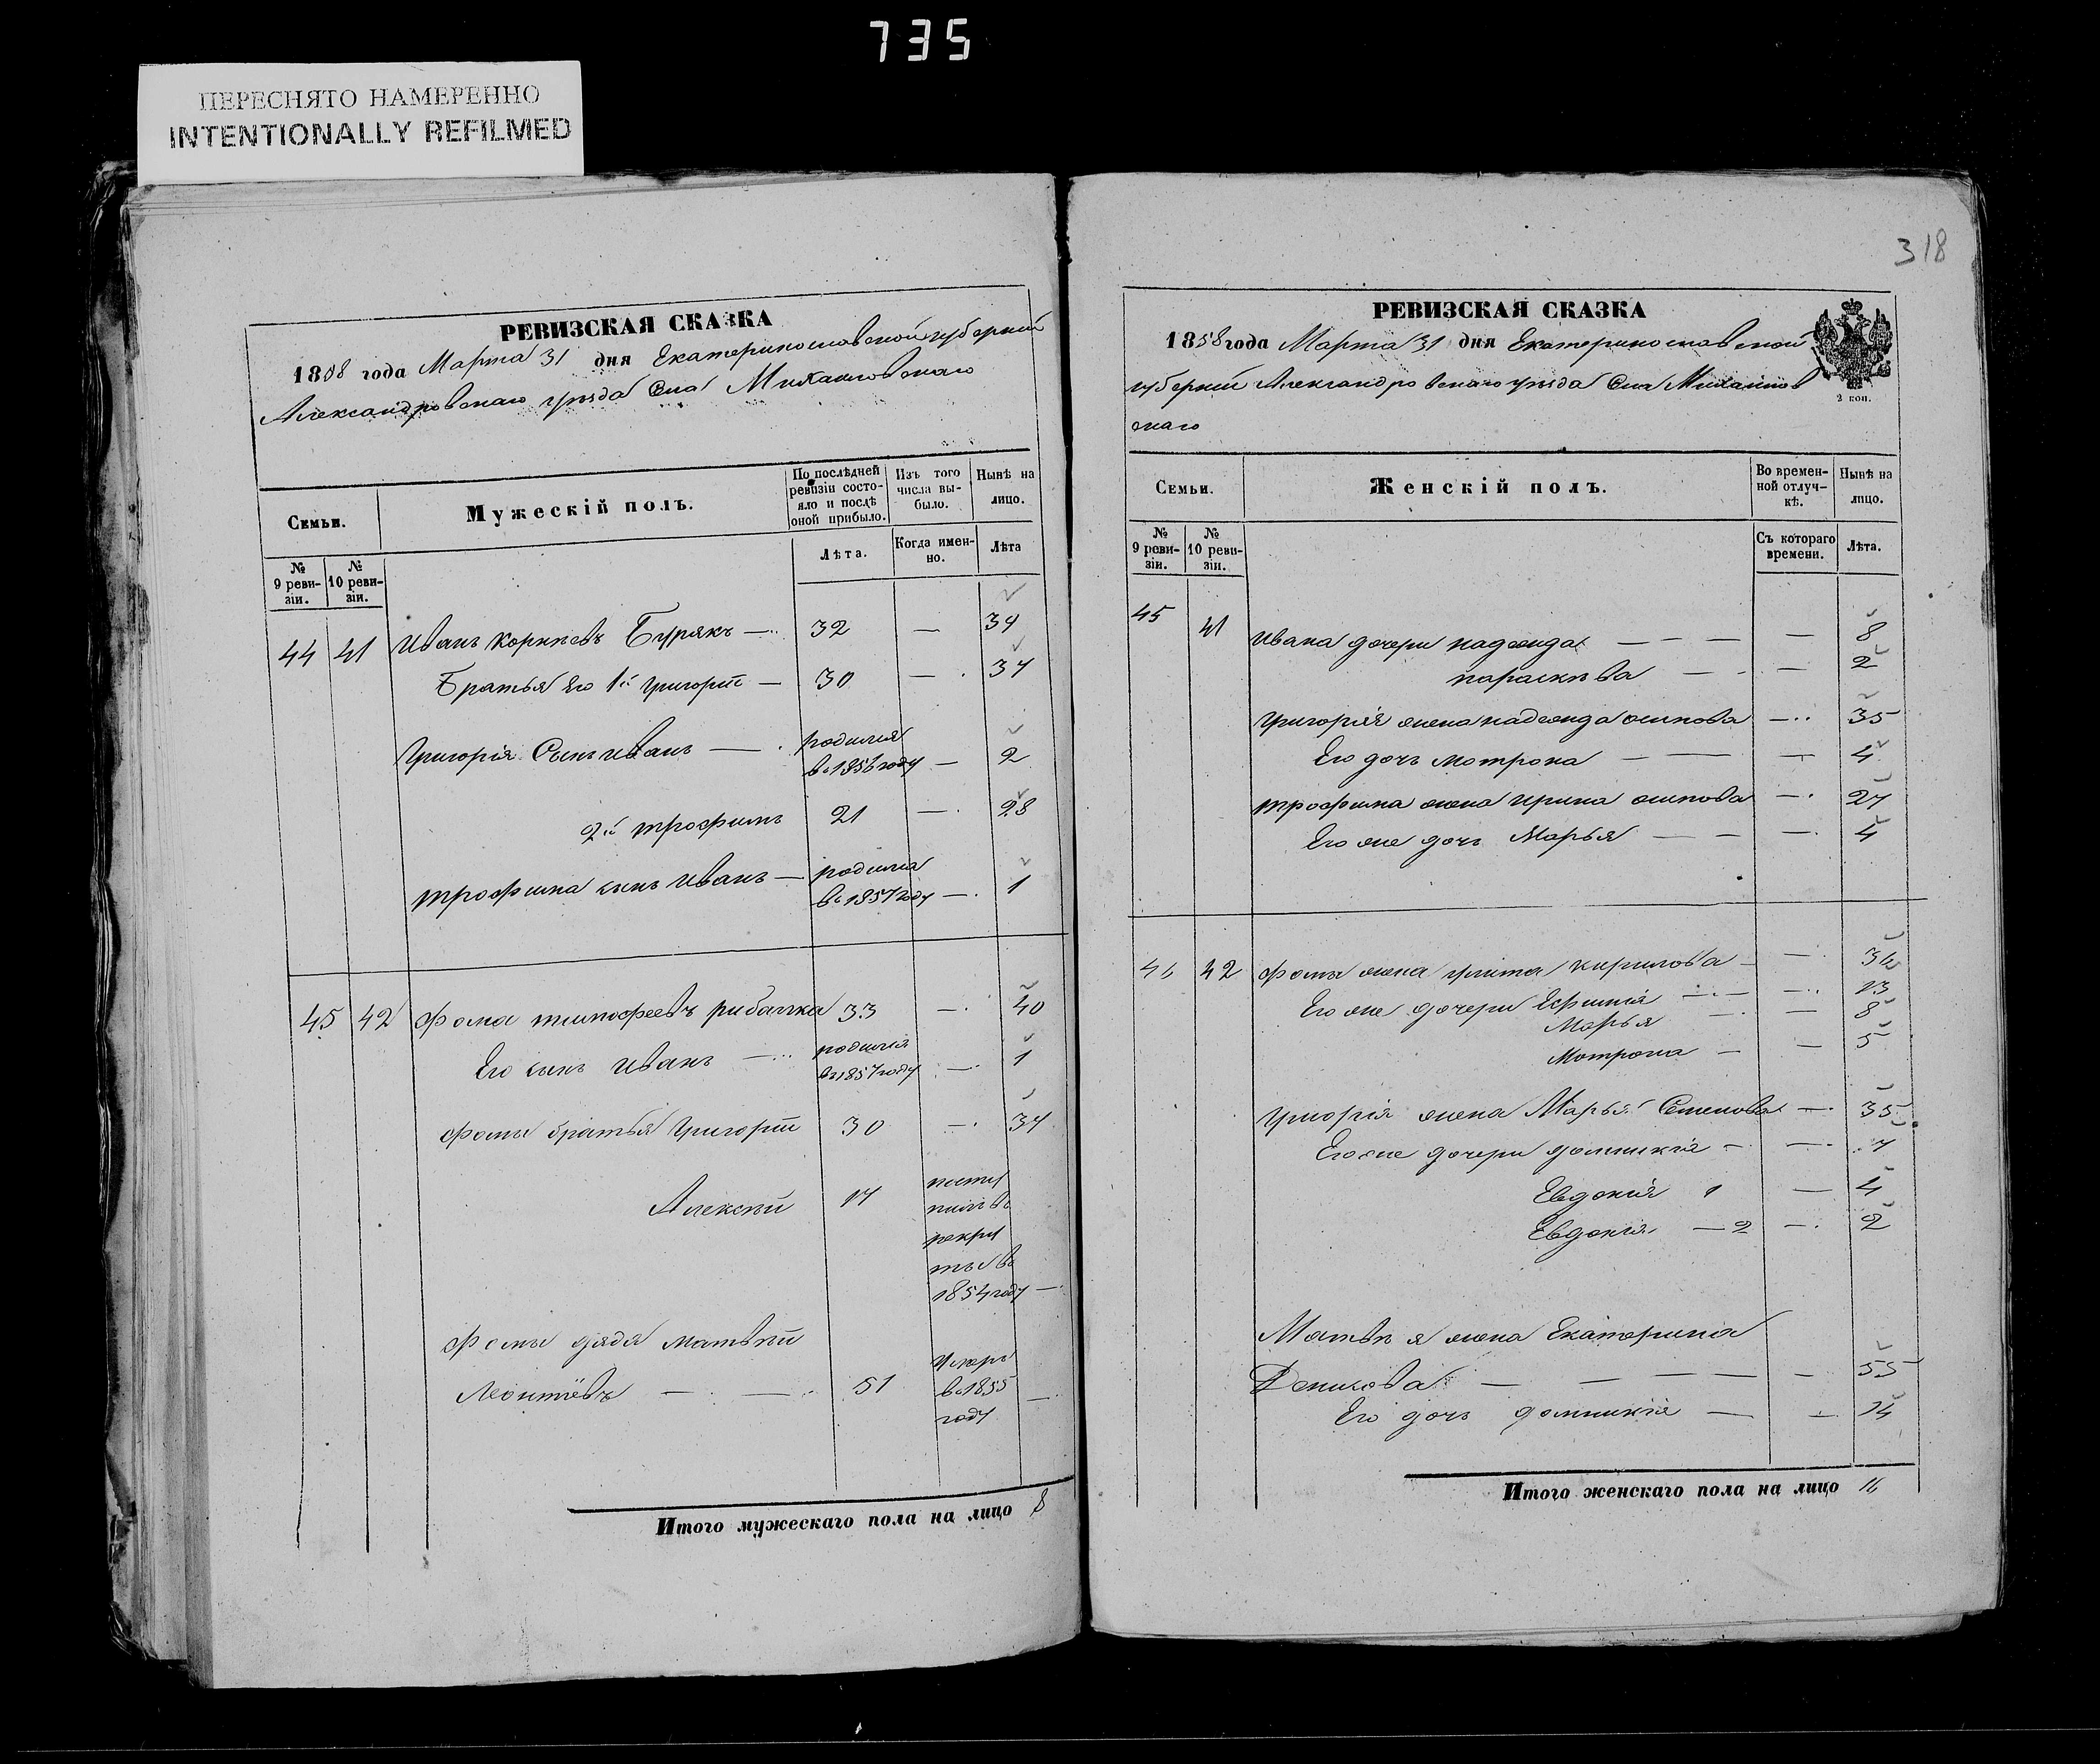 735
ПЕРЕСНЯТО НАМЕРЕННО
INTENTIONALLY REFILMED
РЕВИЗСКАЯ СКАЗКА
1858 года Марта 31 дня Екатеринославской губернии
Александровскаго уѣзда Села Михайловскаго
Семьи.
Мужескій полъ.
По послѣдней ревизіи состояло и послѣ оной прибыло.
Изъ того числа выбыло.
Нынѣ на лицо.
№ 9 ревизіи.
№ 10 ревизіи.
Лѣта.
Когда именно.
Лѣта
44 41 Иванъ Корнѣевъ Бурякъ — 32 — 39
Братья Его 1й Григорій — 30 — 37
Григорія Сынъ Иванъ — родился
въ 1856 году — 2
2й Трофимъ 21 — 28
Трофима сынъ Иванъ — родился
въ 1857 году — 1
45 42 Фома Тимофеевъ Рибалка 33 — 40
Его сынъ Иванъ — родился
въ 1857 году — 1
Фомы братья Григорій 30 — 37
Алексѣй 17
посту
пилъ въ
рекру
ты въ
1854 году —
Фомы дядя Матвѣй
Леонтіевъ — — 51
Умеръ
въ 1855
году —
Итого мужескаго пола на лицо 8
318
РЕВИЗСКАЯ СКАЗКА
1858 года Марта 31 дня Екатеринославской
губерніи Александровскаго уѣзда Села Михайлов
скаго
2 коп.
Семьи.
Женскій полъ.
Во временной отлучкѣ.
Нынѣ на лицо.
№ 9 ревизіи.
№ 10 ревизіи.
Съ котораго времени.
Лѣта.
45 41 Ивана дочери Надежда — — — — 8
Параскѣва — — — 2
Григорія жена Надежда Осипова — 35
Его дочь Мотрона — — — 4
Трофима жена Ирина Осипова — 27
Его же дочь Марья — — — 4
42 Фомы жена Кирилова — — 36
Его же дочери Ефимія — — — 13
Марья — — 8
Мотрона — — 5
Григорія жена Марья Семенова — 35
Его же дочери Домникія — — 7
Евдокія 1 — 4
Евдокія — 2 — 2
Матвѣя жена Екатерина
Денисова — — — — — 55
Его дочь Домникія — — 14
Итого женскаго пола на лицо 16